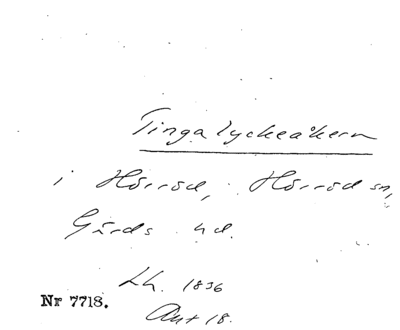 Tingalyckeåkern
i Hörröd, Hörröd sn,
Gärds hd.
Lh. 1836
Nr 7718.
Akt 18.